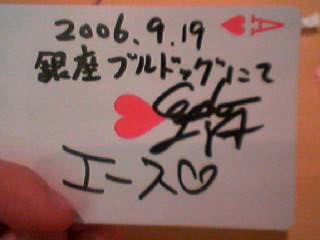 2006.9.19
A
銀座ブルドッグにて
エース♡